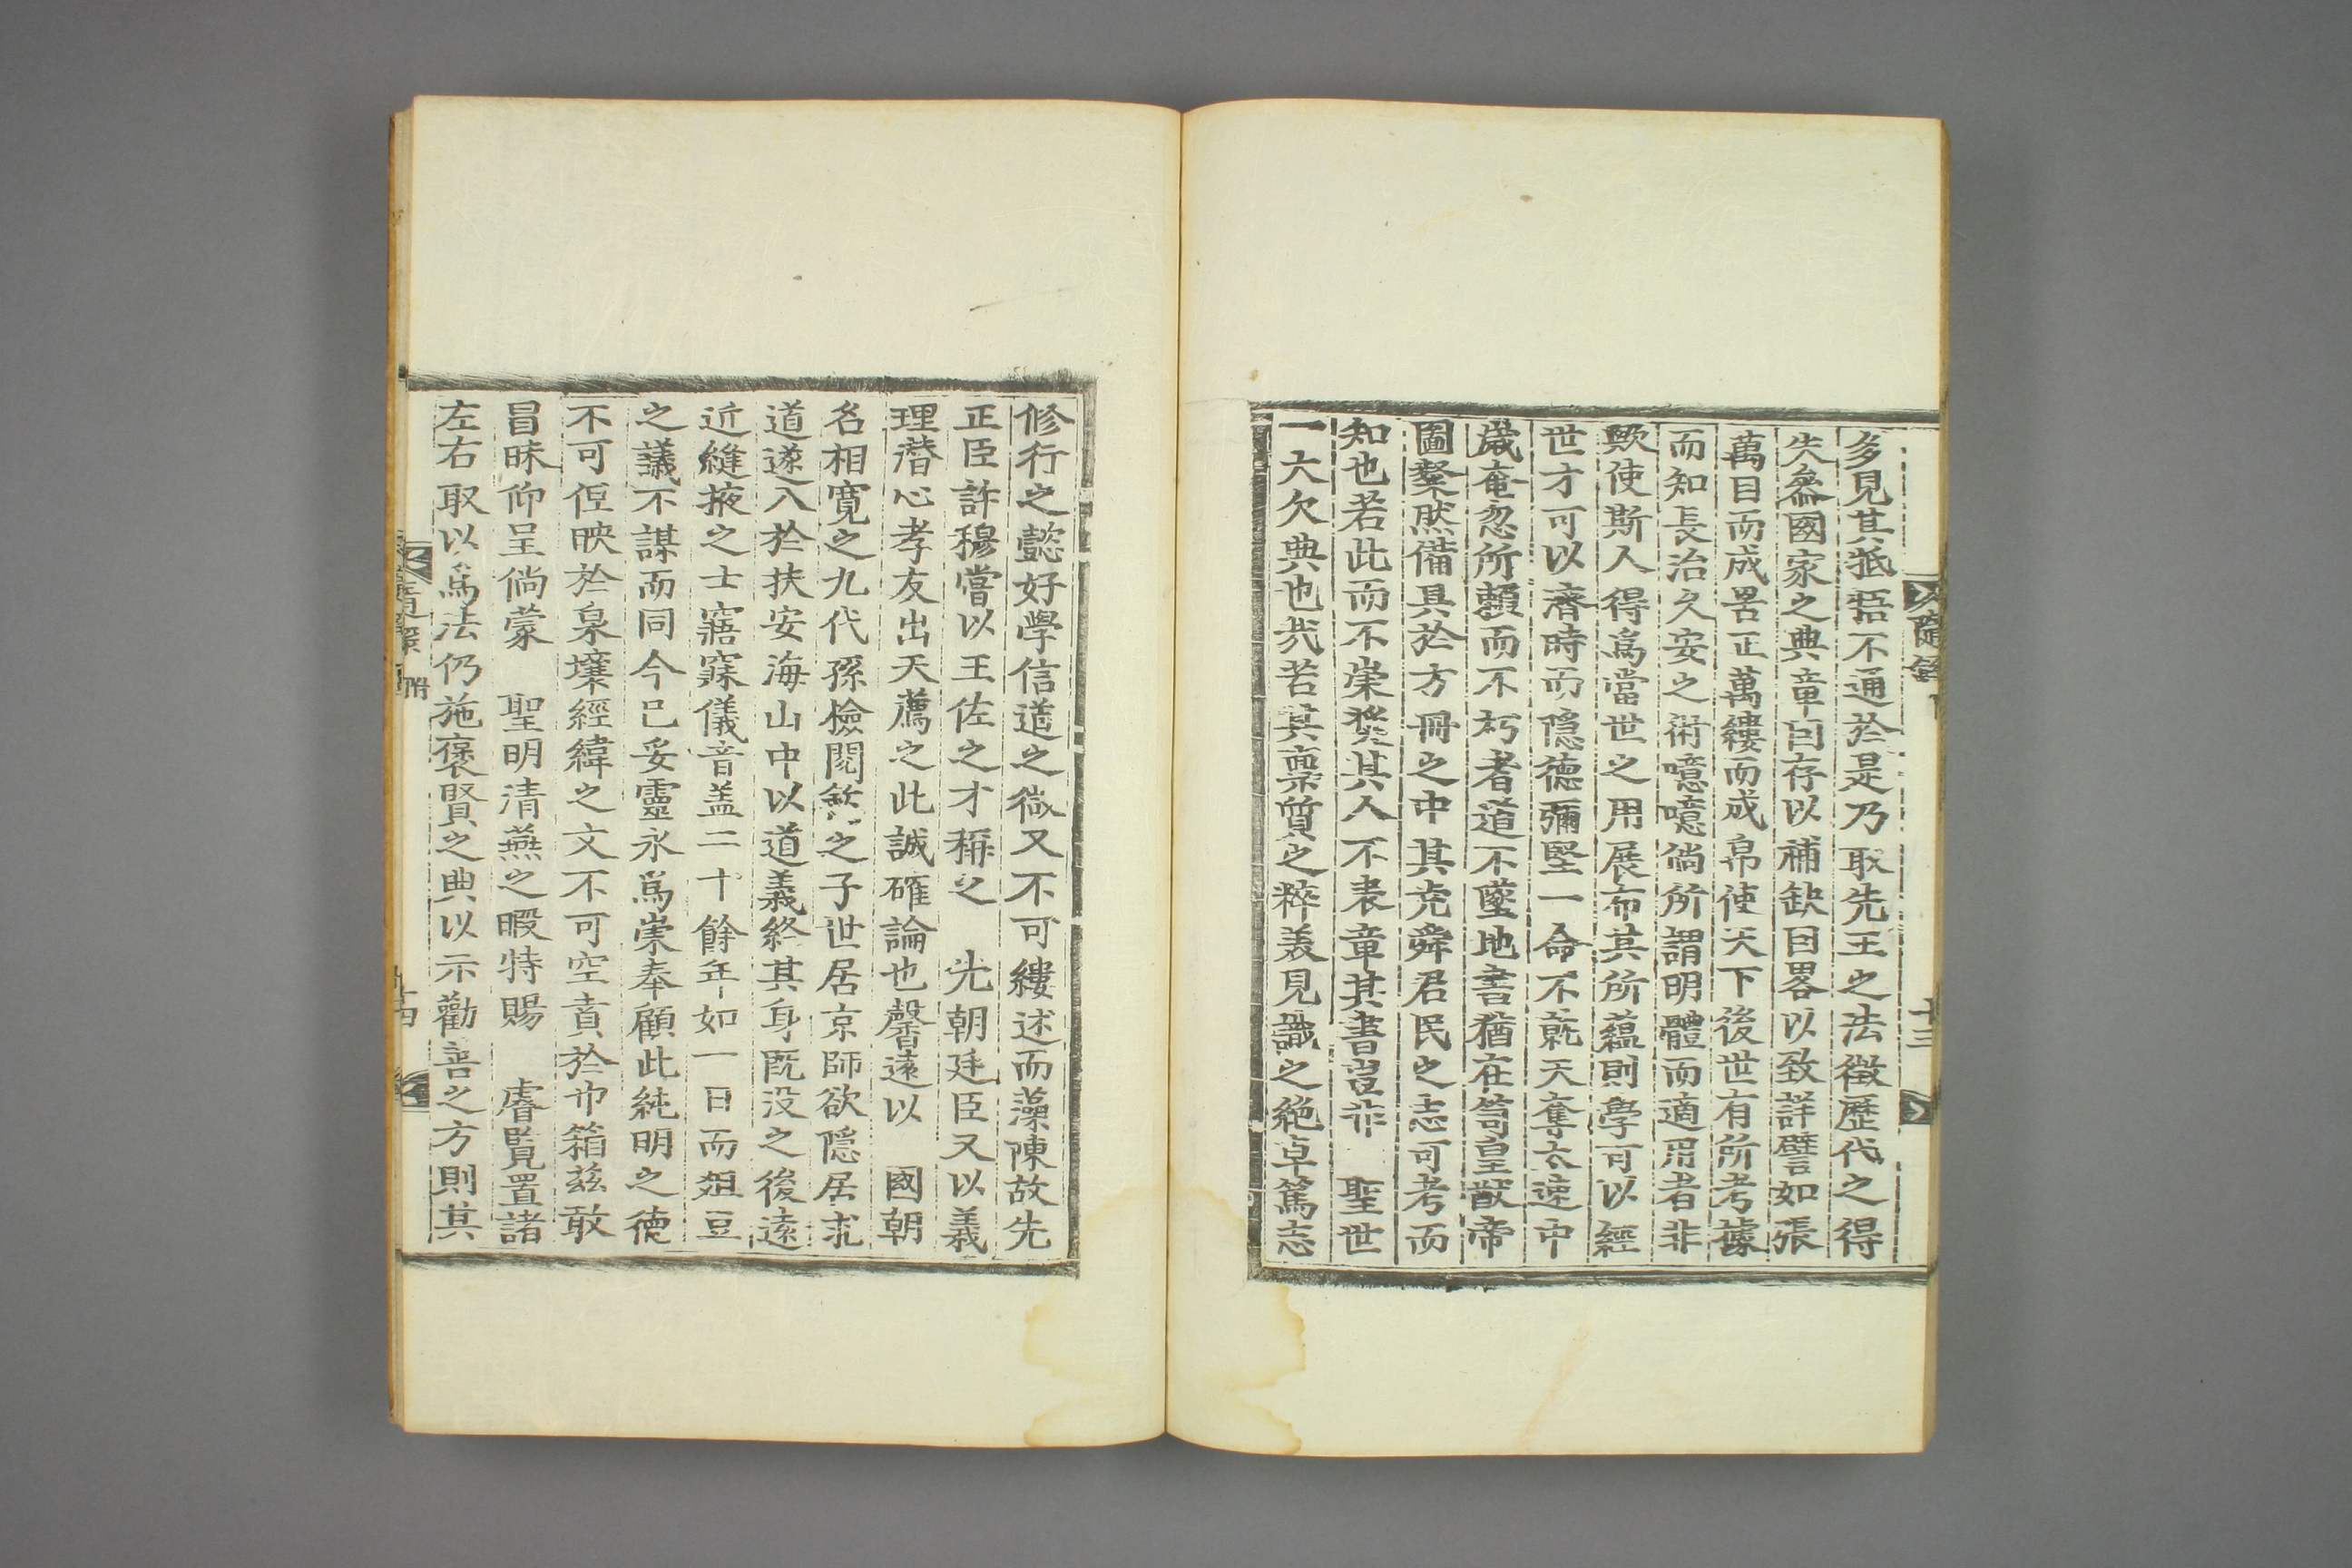 多見其抵捂不通於是乃取先王之法徵歷代之得
失叅國家之典章因存以補缺因畧以致詳譬如張
萬目而成罟正萬縷而成帛使天下後世有所考據
而知長治久安之術噫噫倘所謂明體而適用者非
歟使斯人得爲當世之用展布其所蘊則學可以經
世才可以濟時而隐德彌堅一命不就天奪太速中
歲奄忽所賴而不朽者道不墜地書猶在笥皇猷帝
圖粲然備具於方冊之中其堯舜君民之志可考而
知也若此而不崇奬其人不表章其書豈非 聖世
一大欠典也哉若其稟質之粹美見識之絶卓篤志
隨錄
十三
修行之懿好學信道之微又不可縷述而藻陳故先
正臣許穆嘗以王佐之才稱之 先朝廷臣又以義
理潜心孝友出天薦之此誠確論也馨遠以 國朝
名相寛之九代孫檢閱𢡟之子世居京師欲隐居求
道遂入於扶安海山中以道義終其身旣没之後遠
近縫掖之士寤寐儀音盖二十餘年如一日而俎豆
之議不謀而同今已妥靈永爲崇奉顧此純明之德
不可但映於泉壤經緯之文不可空賁於巾箱玆敢
冒昧仰呈倘蒙 聖明清燕之暇特賜 睿覽置諸
左右取以爲法仍施褒賢之典以示勸善之方則其
隨錄 附
十四